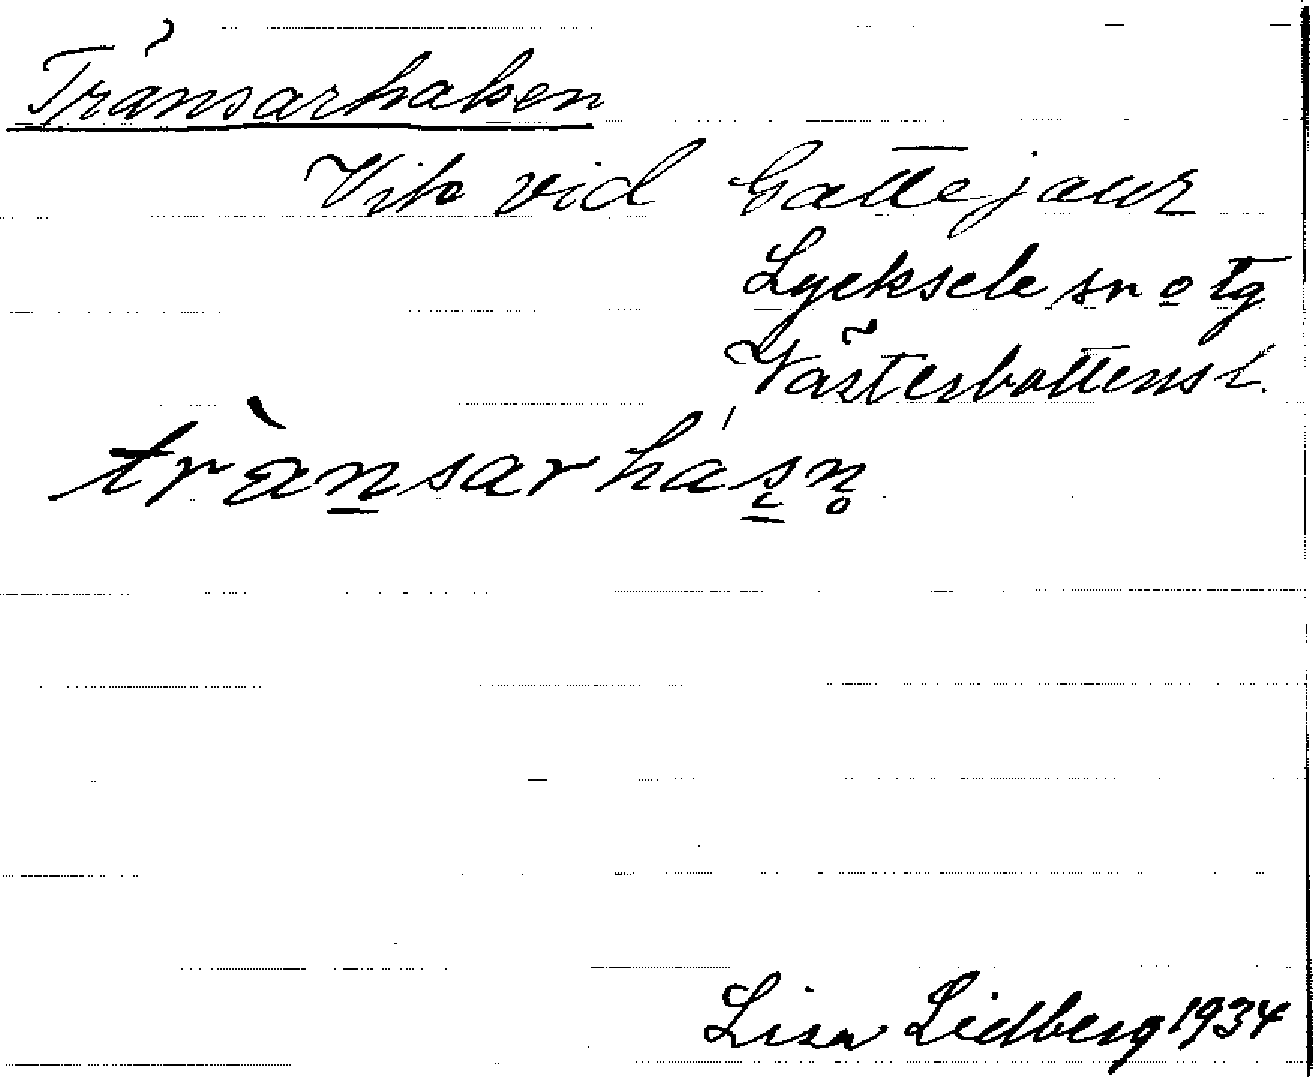 Tränsarhaken
Vik vid Gattejaur
Lycksele sn o tg
Västerbottens l.
trànsarhásn
Lisa Lidberg 1934